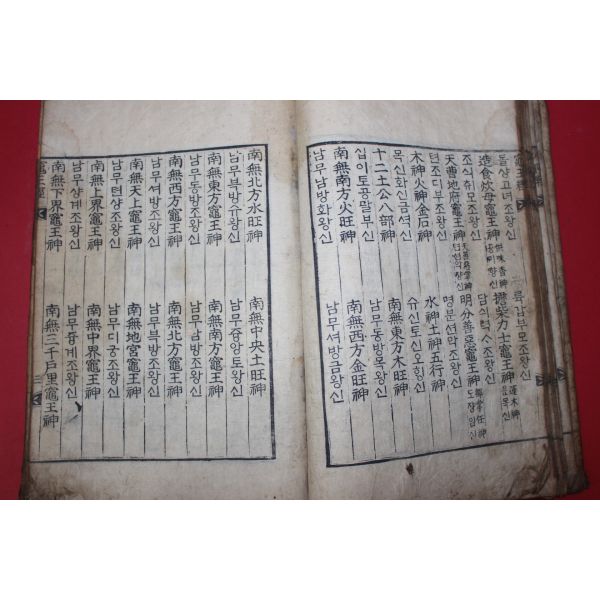 조왕신
류갑부모조왕신
造食炊母竈王神 供味香神
擔柴力士竈王神
조식취모조왕신
담싀력조왕신
天曹地府竈王神
明分善惡竈王神
텬조디부조왕신
명분션악조왕신
木神火神金石神
水神土神五行神
목신화신금셕신
슈신토신오힝신
十二土公八部神
南無東方木旺神
십이토공팔부신
남무동방목왕신
南無南方火旺神
南無西方金旺神
남무남방화왕신
남무셔방금왕신
南無北方水旺神
南無中央土旺神
남무븍방슈왕신
남무즁앙토왕신
南無東方竈王神
南無南方竈王神
남무동방조왕신
남무남방조왕신
南無西方竈王神
南無北方竈王神
남무셔방조왕신
남무븍방조왕신
南無天上竈王神
南無地宮竈王神
남무텬샹조왕신
남무디궁조왕신
南無上界竈王神
南無中界竈王神
남무샹계조왕신
남무듕계조왕신
南無下界竈王神
南無三千戶里竈王神